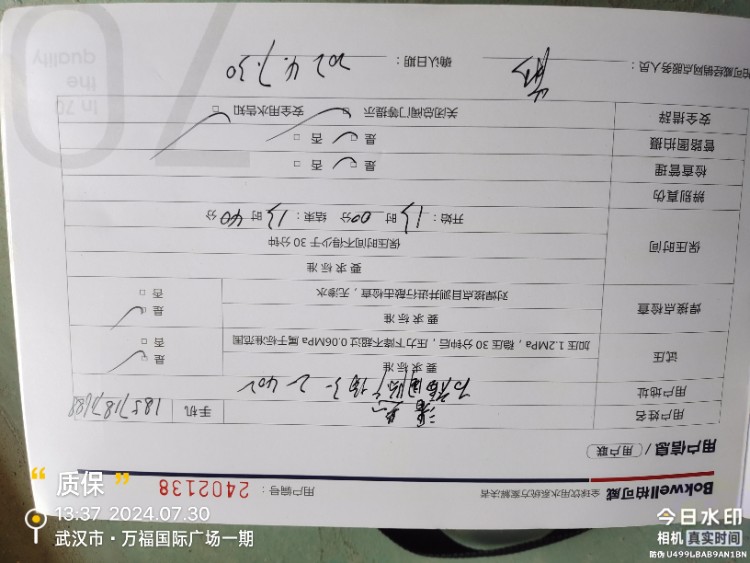 Bokwell柏可威 全球饮用水系统方案解决者 用户编号：2402138
用户信息 / 用户联
用户姓名 手机
用户地址
试压 要求标准 是
加压1.2MPa，稳压30分钟后，压力下降不超过0.06MPa属于标准范围 否
焊接点检查 要求标准 是
对焊接点目测并进行敲击检查，无渗水 否
保压时间 要求标准
保压时间不得少于30分钟
开始：13时00分 结束：13时40分
辨别真伪
检查管理 是 否
管路图拍摄 是 否
安全措辞 关闭总阀门等提示 安全用水告知
柏可威经销网点服务人员： 确认日期：2024.7.30
in 70
the
quality
70
质保
13:37 2024.07.30
武汉市·万福国际广场一期
今日水印
相机 真实时间
防伪 U499LBAB9AN1BN